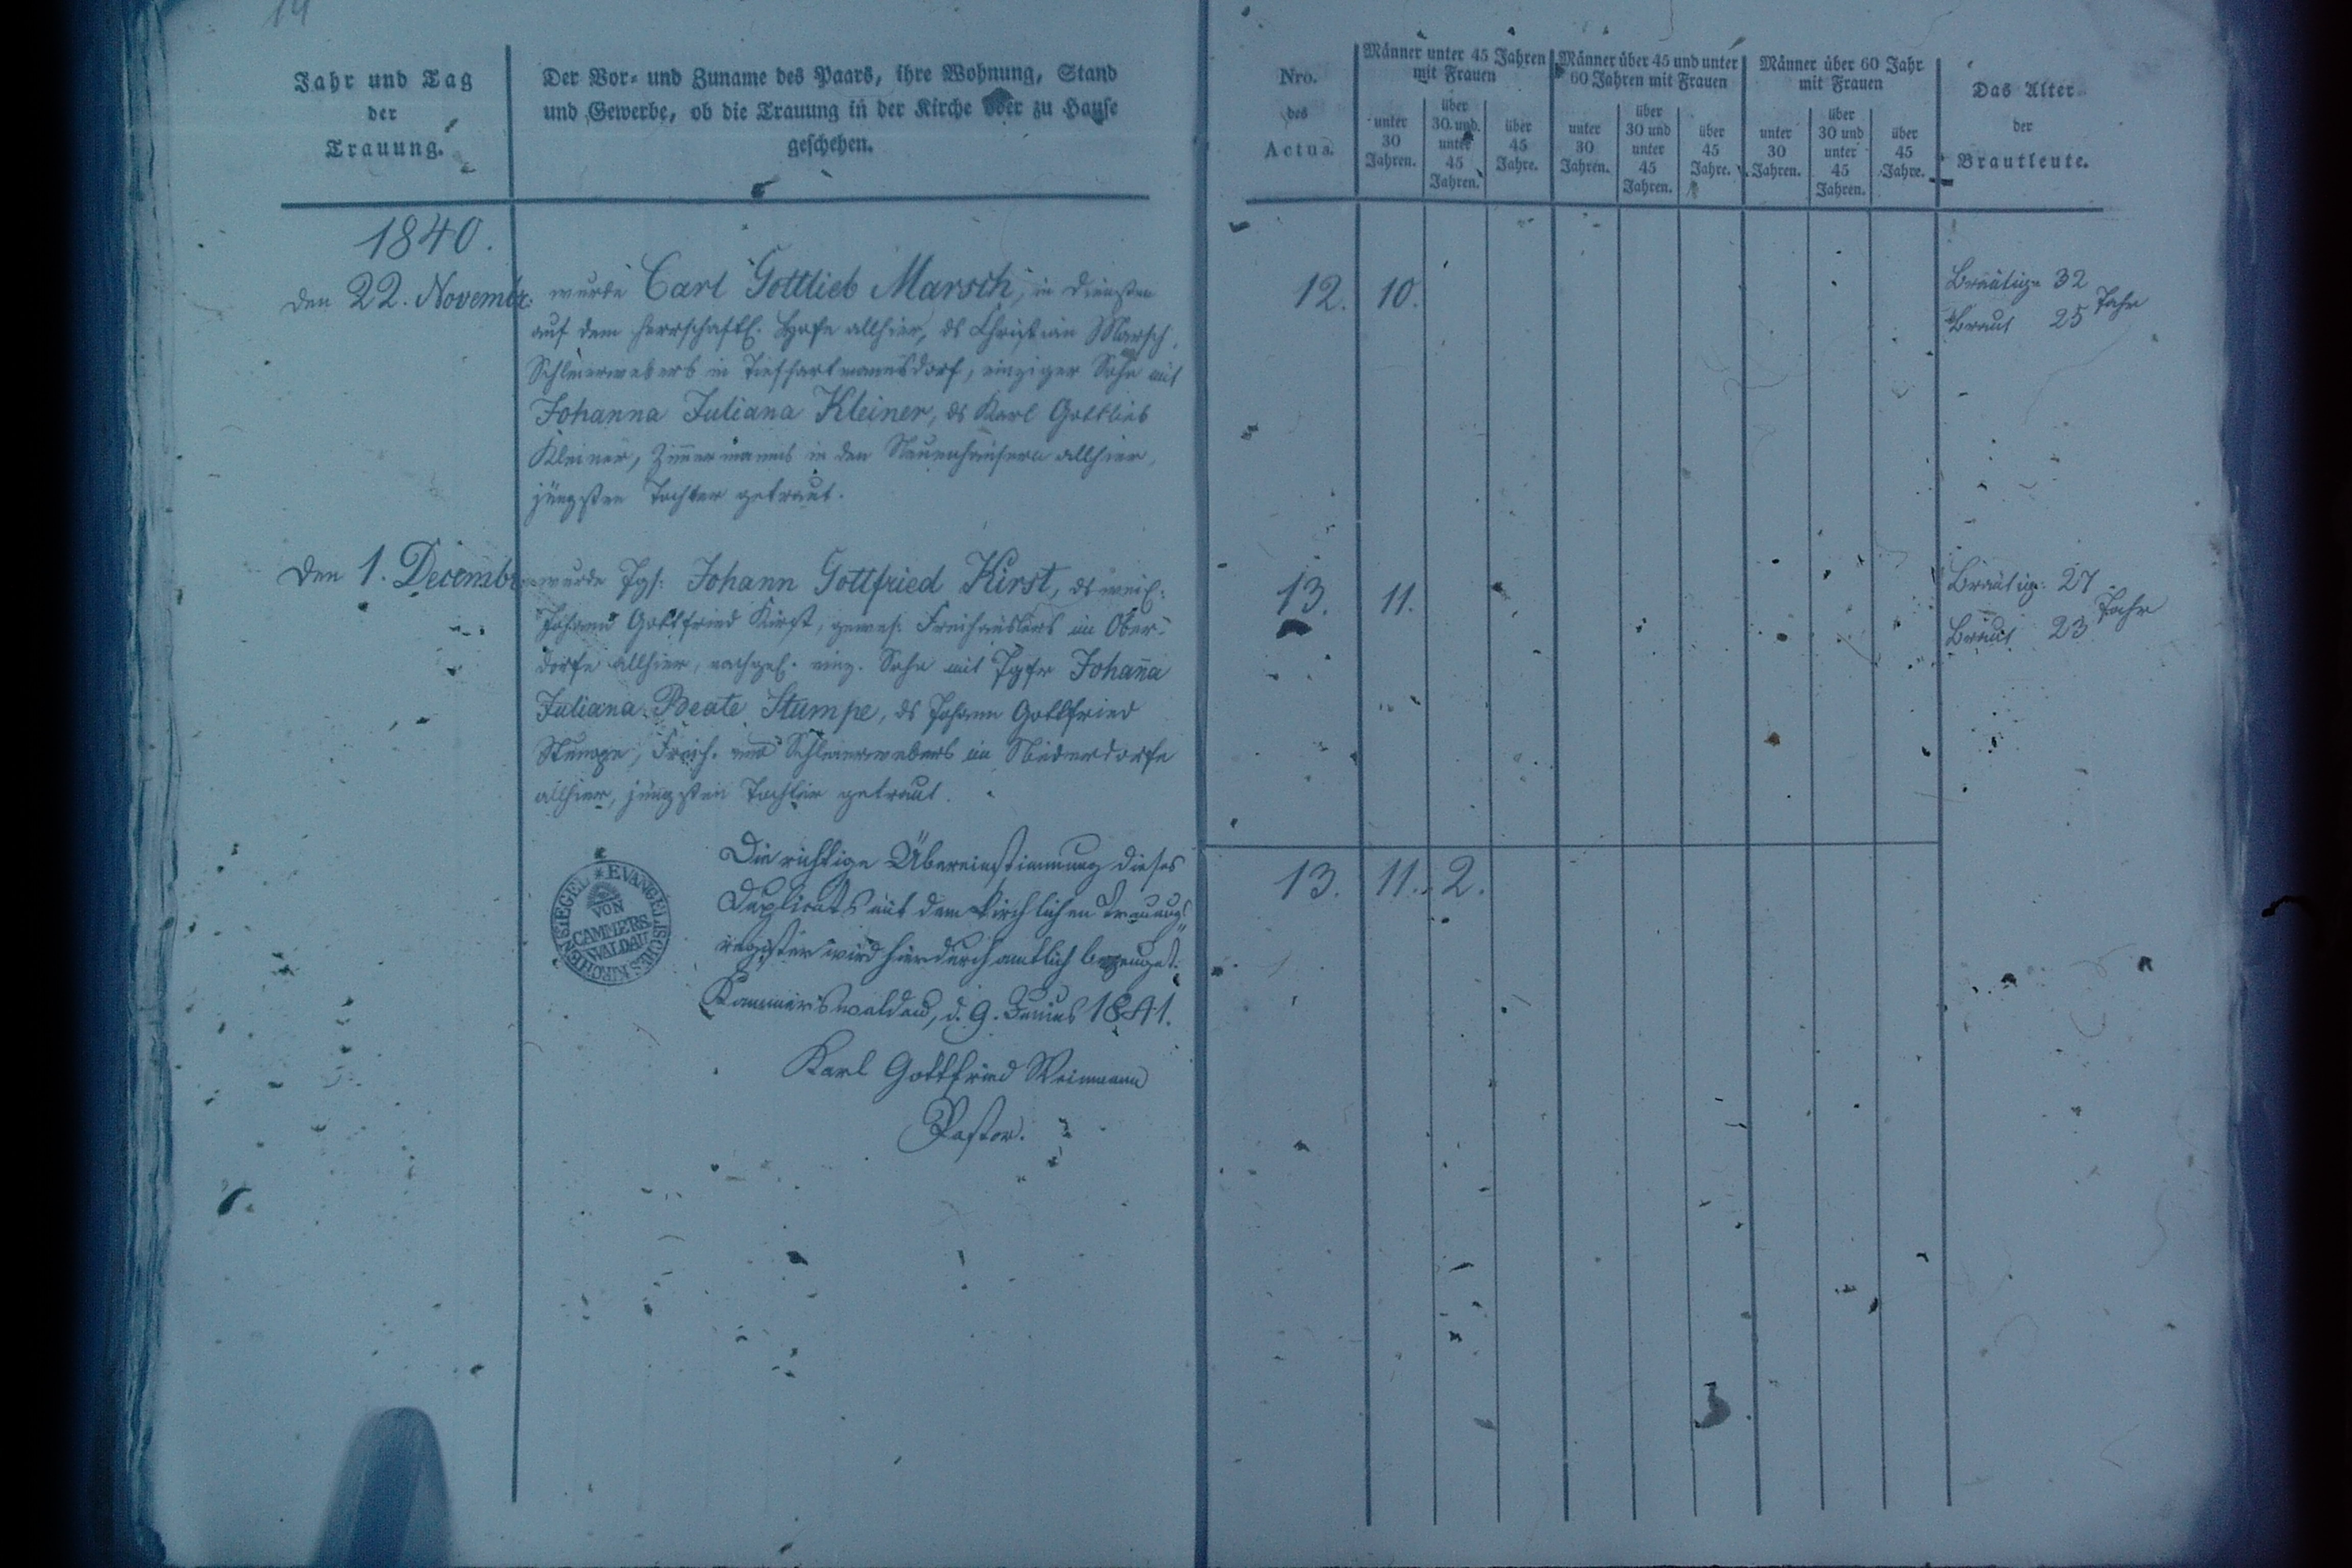 14
Jahr und Tag
der
Trauung.
Der Vor- und Zuname des Paars, ihre Wohnung, Stand
und Gewerbe, ob die Trauung in der Kirche oder zu Hause
geschehen.
1840.
den 22. Novembr.
wurde Carl Gottlieb Marsch, in Diensten
auf dem herrschaftl. Hofe allhier, ds Christian Marsch,
Schleierwebers in Tiefhartmannsdorf, einziger Sohn mit
Johanna Juliana Kleiner, ds Karl Gottlieb
Kleiner, Zim̄ermanns in den Neuenhäusern allhier,
jüngsten Tochter getraut.
den 1. Decembr
wurde Jgs. Johann Gottfried Kirst, ds weil.
Johann Gottfried Kirst, gewes. Freihäuslers im Ober-
dorfe allhier, nachgel. einz. Sohn mit Jgfr Johan̄a
Juliana Beate Stumpe, ds Johann Gottfried
Stumpe, Freih. und Schleierwebers im Niederdorfe
allhier, jüngsten Tochter getraut.
Die richtige Übereinstimmung dieses
Duplicats mit dem kirchlichen Trauungs-
register wird hierdurch amtlich bezeuget.
Kammerswaldau, d. 9. 1841.
Karl Gottfried Weimann
Pastor.
EVANGELISCHES KIRCHENSIEGEL
VON
CAMMERS
WALDAU
Nro.
des
Actus.
Männer unter 45 Jahren
mit Frauen
unter
30
Jahren.
über
30 und
unter
45
Jahren.
über
45
Jahre.
Männer über 45 und unter
60 Jahren mit Frauen
unter
30
Jahren.
über
30 und
unter
45
Jahren.
über
45
Jahre.
Männer über 60 Jahr
mit Frauen
unter
30
Jahren.
über
30 und
unter
45
Jahren.
über
45
Jahre.
Das Alter
der
Brautleute.
12. 10.
Bräutig. 32
Braut 25 Jahr
13. 11.
Bräutig. 27
Braut 23 Jahr
13. 11. 2.